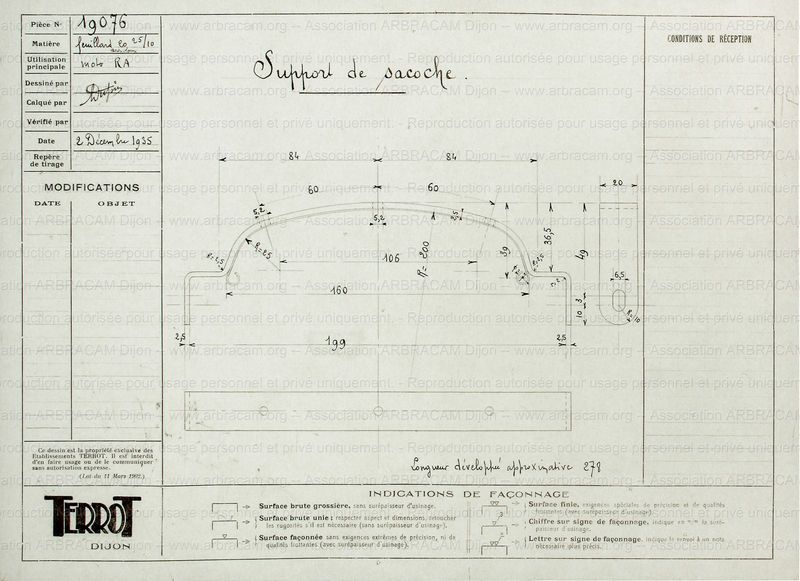 Pièce N° 19076
Matière feuillard 20 25/10
Utilisation principale moto RA
Dessiné par
Calqué par
Vérifié par
Date 2 Décembre 1935
Repère de tirage
MODIFICATIONS
DATE OBJET
Support de sacoche.
CONDITIONS DE RÉCEPTION
84 84
60 60
20
5,2 5,2
R=25
106
R=200
39
36,5
49
160
6,5
10 3
R=10
2,5 199 2,5
Longueur développée approximative 278
Ce dessin est la propriété exclusive des
Etablissements TERROT. Il est interdit
d'en faire usage ou de le communiquer
sans autorisation expresse.
(Loi du 11 Mars 1902.)
TERROT
DIJON
INDICATIONS DE FAÇONNAGE
Surface brute grossière, sans surépaisseur d'usinage.
Surface brute unie : respecter aspect et dimensions, retoucher
les rugosités s'il est nécessaire (sans surépaisseur d'usinage).
Surface façonnée sans exigences extrêmes de précision, ni de
qualités frottantes (avec surépaisseur d'usinage).
Surface finie, exigences spéciales de précision et de qualités
frottantes (avec surépaisseur d'usinage).
Chiffre sur signe de façonnage, indique en m/m la surépaisseur d'usinage.
Lettre sur signe de façonnage, indique le renvoi à un nota
nécessaire plus précis.
www.arbracam.org -- Association ARBRACAM Dijon -- www.arbracam.org
Reproduction autorisée pour usage personnel et privé uniquement.